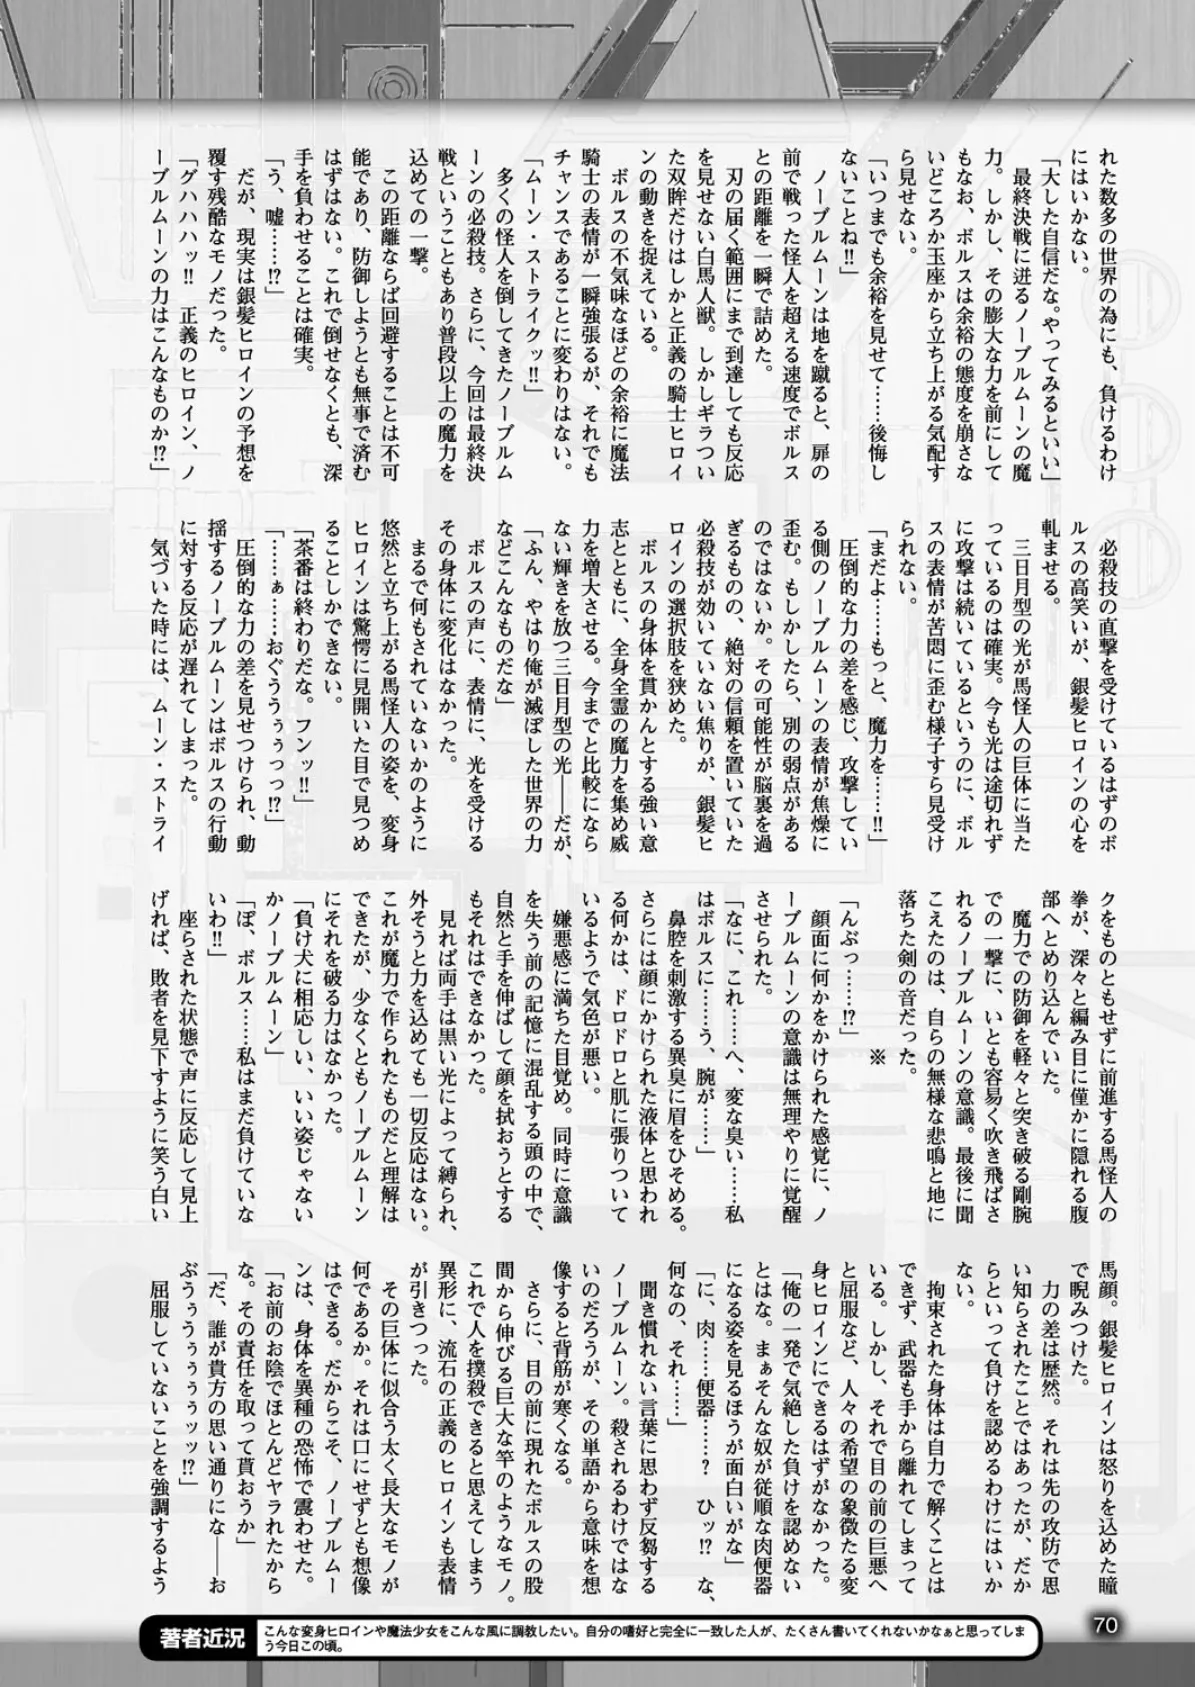 れた数多の世界の為にも、負けるわけ
にはいかない。
「大した自信だな。やってみるといい」
　最終決戦に迸るノーブルムーンの魔
力。しかし、その膨大な力を前にして
もなお、ボルスは余裕の態度を崩さな
いどころか玉座から立ち上がる気配す
ら見せない。
「いつまでも余裕を見せて……後悔し
ないことね!!」
　ノーブルムーンは地を蹴ると、扉の
前で戦った怪人を超える速度でボルス
との距離を一瞬で詰めた。
　刃の届く範囲にまで到達しても反応
を見せない白馬人獣。しかしギラつい
た双眸だけはしかと正義の騎士ヒロイ
ンの動きを捉えている。
　ボルスの不気味なほどの余裕に魔法
騎士の表情が一瞬強張るが、それでも
チャンスであることに変わりはない。
「ムーン・ストライクッ!!」
　多くの怪人を倒してきたノーブルム
ーンの必殺技。さらに、今回は最終決
戦ということもあり普段以上の魔力を
込めての一撃。
　この距離ならば回避することは不可
能であり、防御しようとも無事で済む
はずはない。これで倒せなくとも、深
手を負わせることは確実。
「う、嘘……!?」
　だが、現実は銀髪ヒロインの予想を
覆す残酷なモノだった。
「グハハハッ!!　正義のヒロイン、ノ
ーブルムーンの力はこんなものか!?」
　必殺技の直撃を受けているはずのボ
ルスの高笑いが、銀髪ヒロインの心を
軋ませる。
　三日月型の光が馬怪人の巨体に当た
っているのは確実。今も光は途切れず
に攻撃は続いているというのに、ボル
スの表情が苦悶に歪む様子すら見受け
られない。
「まだよ……もっと、魔力を……!!」
　圧倒的な力の差を感じ、攻撃してい
る側のノーブルムーンの表情が焦燥に
歪む。もしかしたら、別の弱点がある
のではないか。その可能性が脳裏を過
ぎるものの、絶対の信頼を置いていた
必殺技が効いていない焦りが、銀髪ヒ
ロインの選択肢を狭めた。
　ボルスの身体を貫かんとする強い意
志とともに、全身全霊の魔力を集め威
力を増大させる。今までと比較になら
ない輝きを放つ三日月型の光――だが、
「ふん、やはり俺が滅ぼした世界の力
などこんなものだな」
　ボルスの声に、表情に、光を受ける
その身体に変化はなかった。
　まるで何もされていないかのように
悠然と立ち上がる馬怪人の姿を、変身
ヒロインは驚愕に見開いた目で見つめ
ることしかできない。
「茶番は終わりだな。フンッ!!」
「……ぁ……おぐううぅぅっっ!?」
　圧倒的な力の差を見せつけられ、動
揺するノーブルムーンはボルスの行動
に対する反応が遅れてしまった。
　気づいた時には、ムーン・ストライ
クをものともせずに前進する馬怪人の
拳が、深々と編み目に僅かに隠れる腹
部へとめり込んでいた。
　魔力での防御を軽々と突き破る剛腕
での一撃に、いとも容易く吹き飛ばさ
れるノーブルムーンの意識。最後に聞
こえたのは、自らの無様な悲鳴と地に
落ちた剣の音だった。
※
「んぶっ……!?」
　顔面に何かをかけられた感覚に、ノ
ーブルムーンの意識は無理やりに覚醒
させられた。
「なに、これ……へ、変な臭い……私
はボルスに……う、腕が……」
　鼻腔を刺激する異臭に眉をひそめる。
さらには顔にかけられた液体と思われ
る何かは、ドロドロと肌に張りついて
いるようで気色が悪い。
　嫌悪感に満ちた目覚め。同時に意識
を失う前の記憶に混乱する頭の中で、
自然と手を伸ばして顔を拭おうとする
もそれはできなかった。
　見れば両手は黒い光によって縛られ、
外そうと力を込めても一切反応はない。
これが魔力で作られたものだと理解は
できたが、少なくともノーブルムーン
にそれを破る力はなかった。
「負け犬に相応しい、いい姿じゃない
かノーブルムーン」
「ぼ、ボルス……私はまだ負けていな
いわ!!」
　座らされた状態で声に反応して見上
げれば、敗者を見下すように笑う白い
馬顔。銀髪ヒロインは怒りを込めた瞳
で睨みつけた。
　力の差は歴然。それは先の攻防で思
い知らされたことではあったが、だか
らといって負けを認めるわけにはいか
ない。
　拘束された身体は自力で解くことは
できず、武器も手から離れてしまって
いる。しかし、それで目の前の巨悪へ
と屈服など、人々の希望の象徴たる変
身ヒロインにできるはずがなかった。
「俺の一発で気絶した負けを認めない
とはな。まぁそんな奴が従順な肉便器
になる姿を見るほうが面白いがな」
「に、肉……便器……？　ひッ!?　な、
何なの、それ……」
　聞き慣れない言葉に思わず反芻する
ノーブルムーン。殺されるわけではな
いのだろうが、その単語から意味を想
像すると背筋が寒くなる。
　さらに、目の前に現れたボルスの股
間から伸びる巨大な竿のようなモノ。
これで人を撲殺できると思えてしまう
異形に、流石の正義のヒロインも表情
が引きつった。
　その巨体に似合う太く長大なモノが
何であるか。それは口にせずとも想像
はできる。だからこそ、ノーブルムー
ンは、身体を異種の恐怖で震わせた。
「お前のお陰でほとんどヤラれたから
な。その責任を取って貰おうか」
「だ、誰が貴方の思い通りにな――お
ぶうぅうぅぅぅぅッッ!?」
　屈服していないことを強調するよう
70
著者近況
こんな変身ヒロインや魔法少女をこんな風に調教したい。自分の嗜好と完全に一致した人が、たくさん書いてくれないかなぁと思ってしま
う今日この頃。